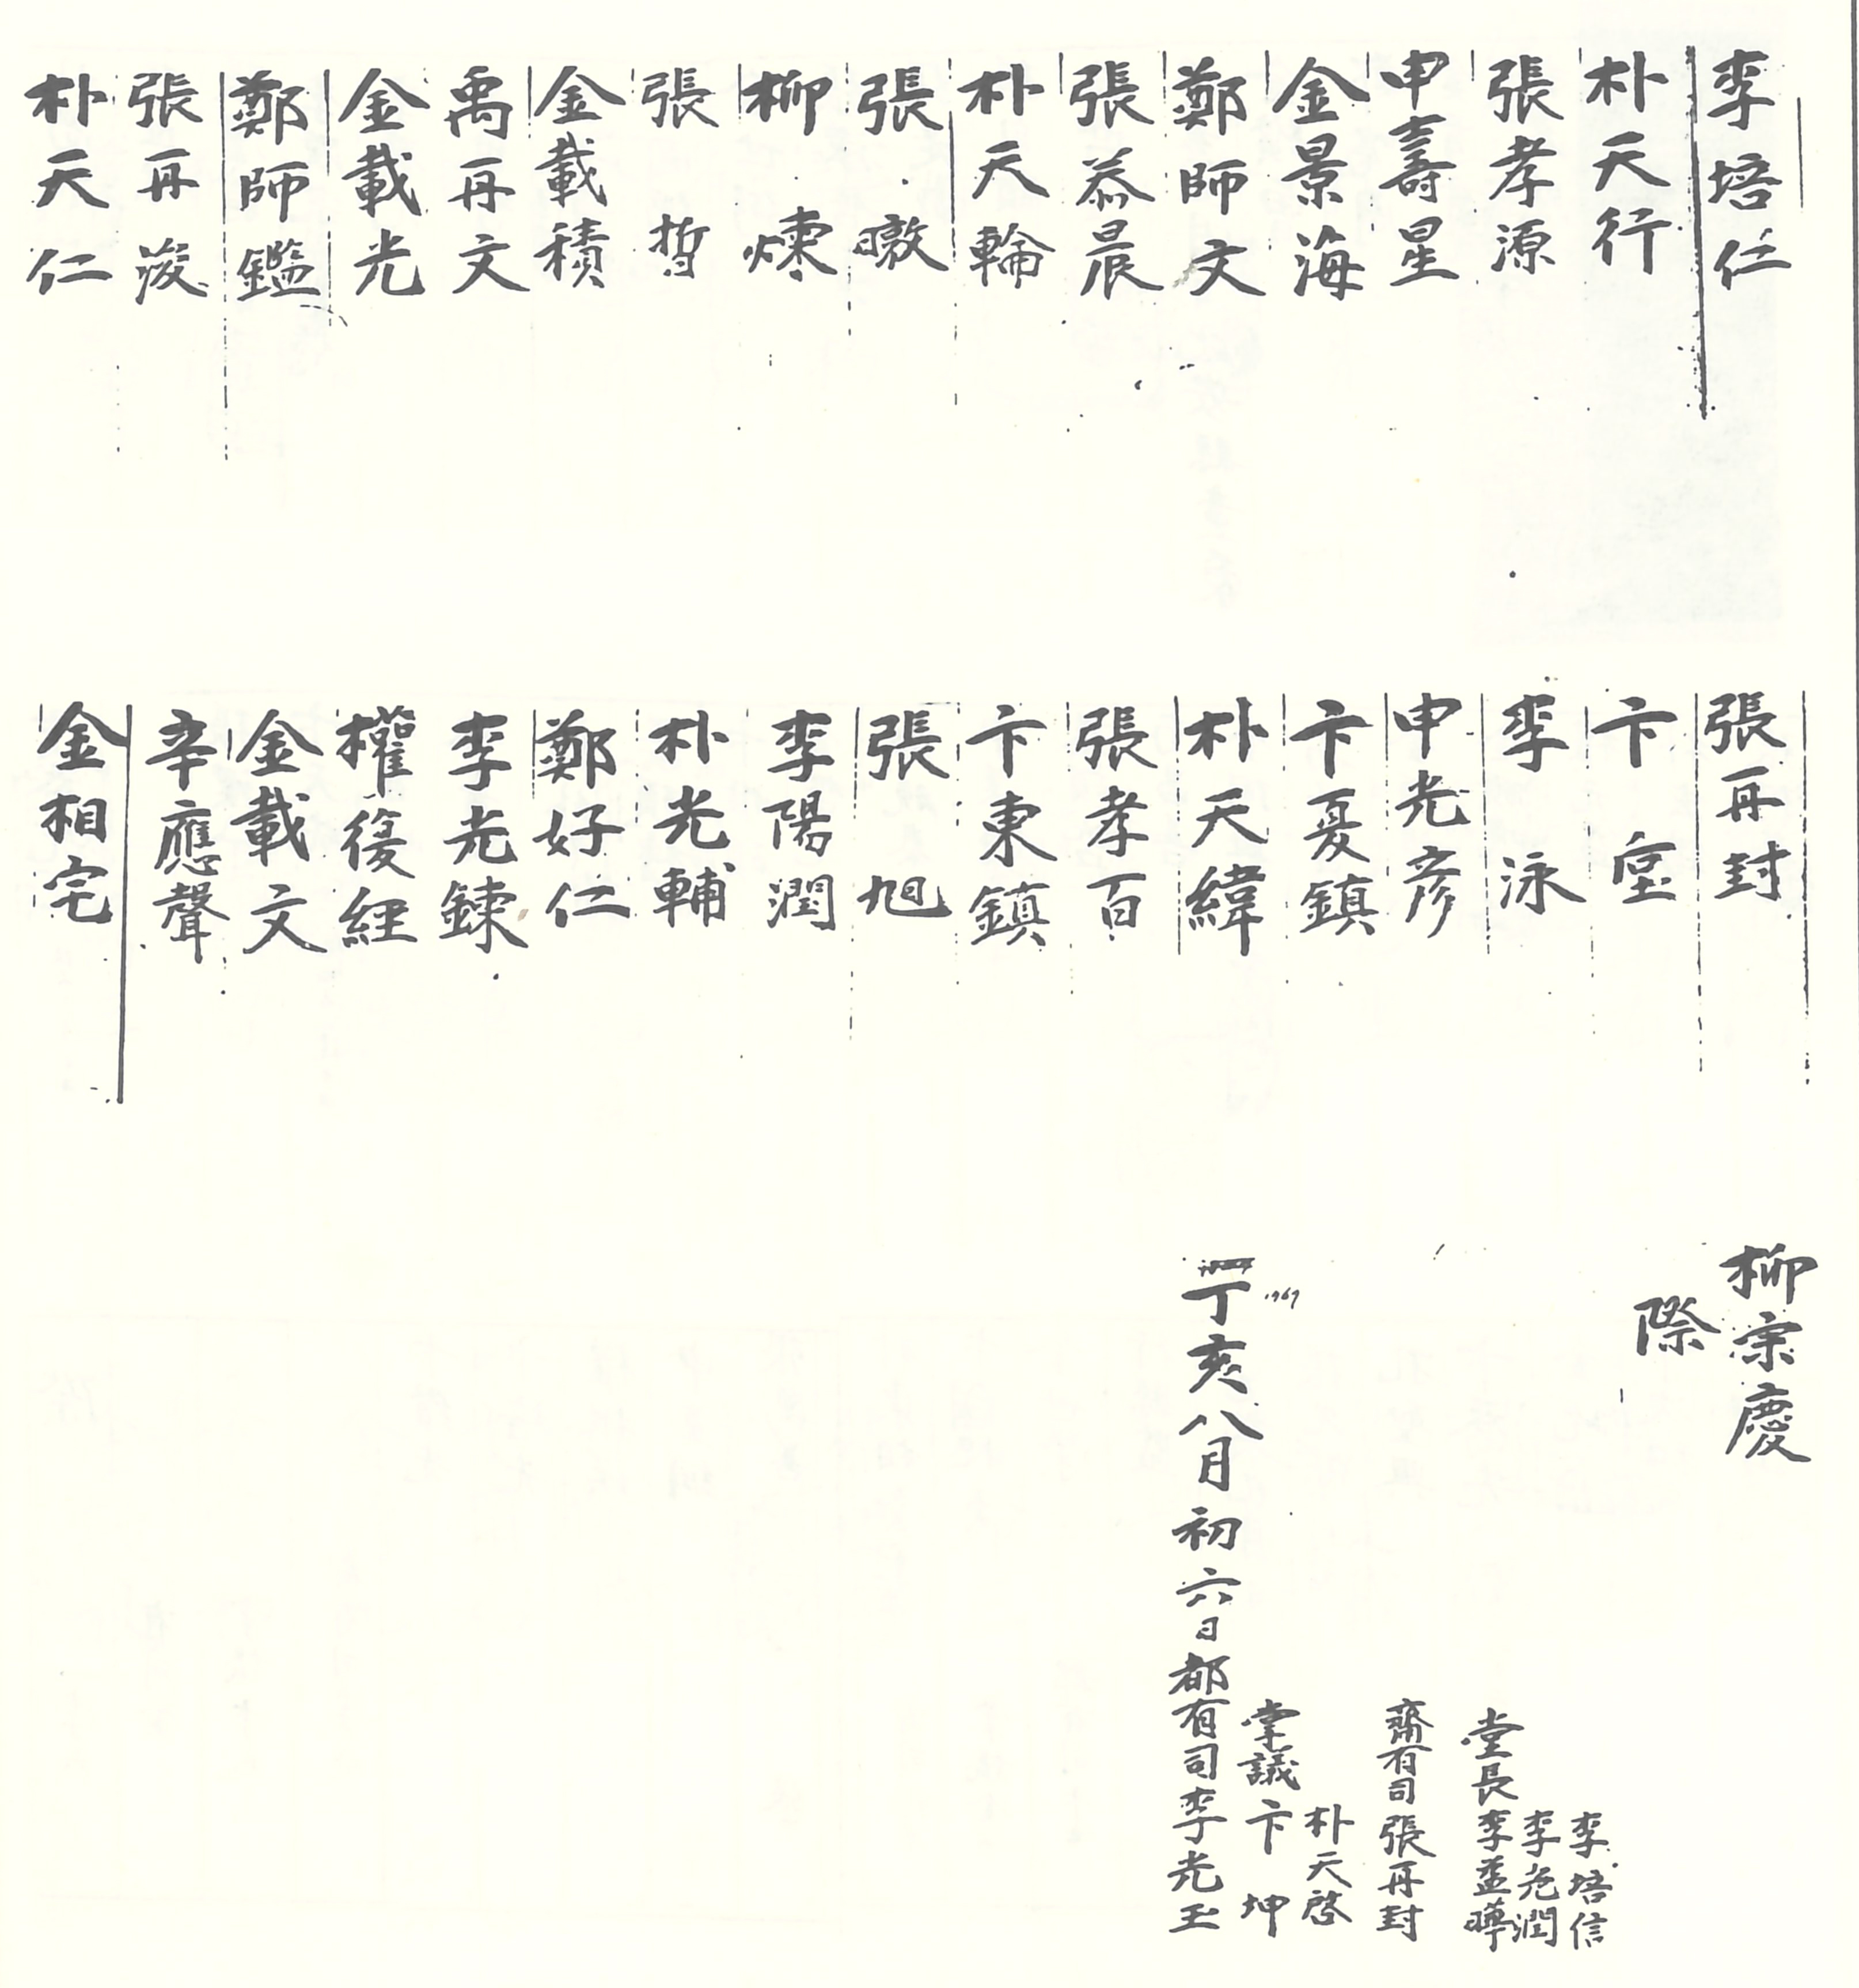 李培仁
朴天行
張孝源
申壽星
金景海
鄭師文
張恭晨
朴天輪
張暾
柳煉
張晢
金載積
禹再文
金載光
鄭師鑑
張再浚
朴天仁
張再封
卞堂
李泳
申光彦
卞夏鎮
朴天緯
張孝百
卞東鎮
張旭
李陽潤
朴光輔
鄭好仁
李光鍊
權復經
金載文
辛應聲
金相宅
柳宗慶
際
丁亥八月初六日都有司李光玉
1767
掌議卞坤
朴天啓
齋有司張再封
堂長李益曄
李光潤
李培信